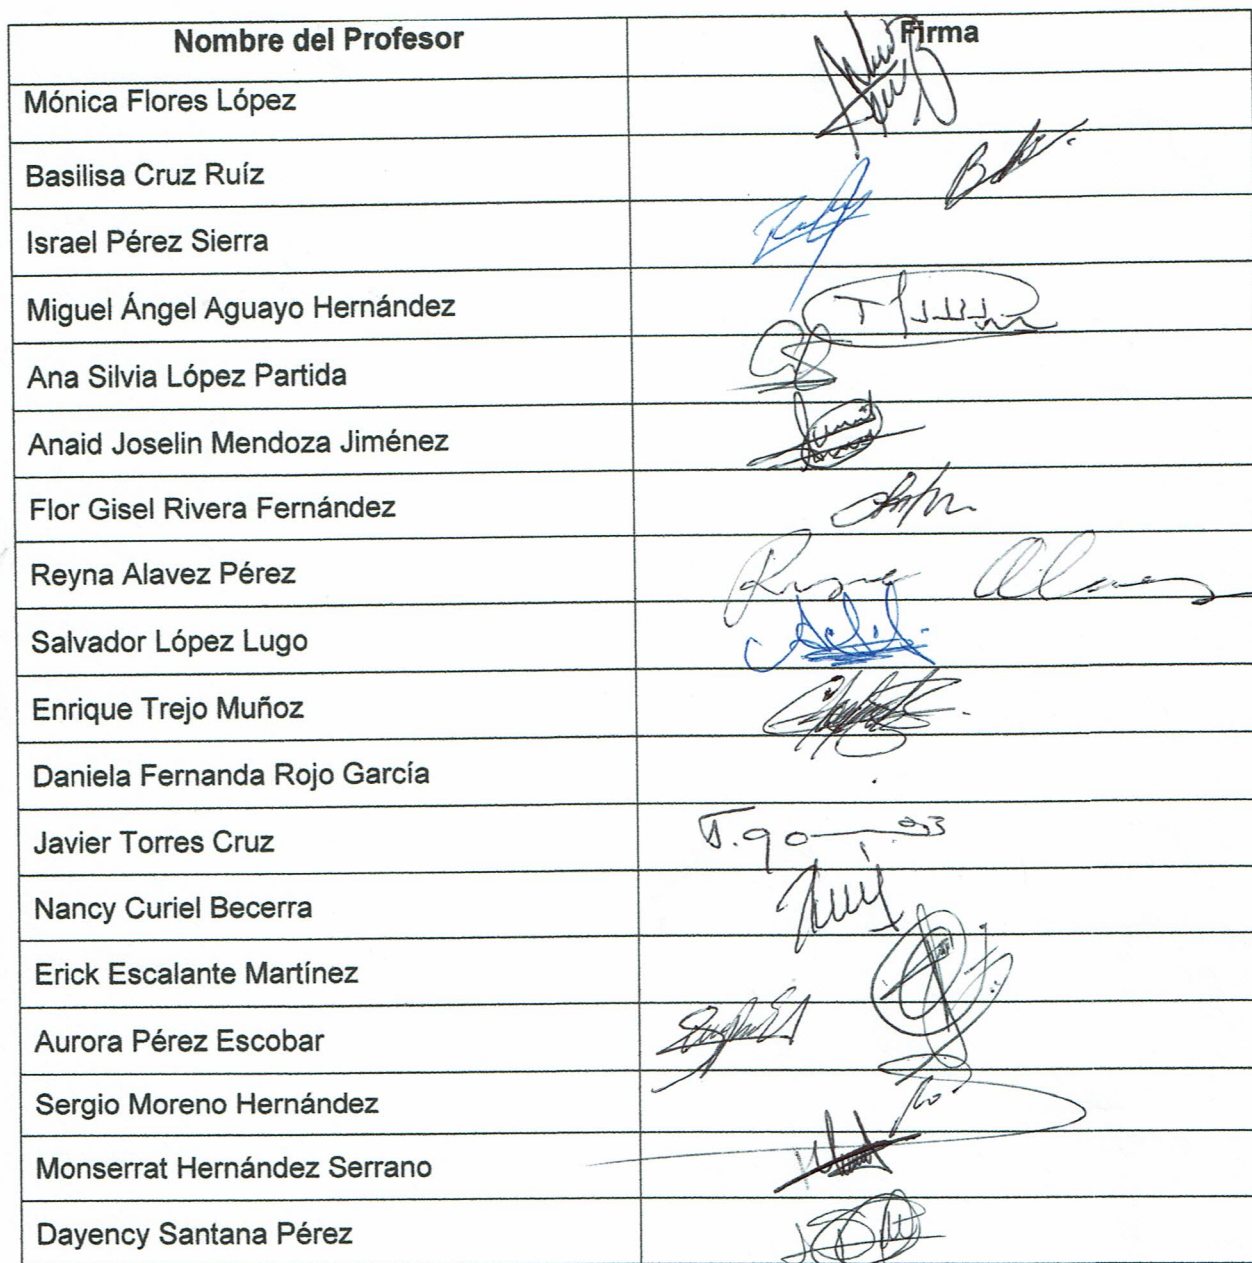 Nombre del Profesor Firma
Mónica Flores López
Basilisa Cruz Ruíz
Israel Pérez Sierra
Miguel Ángel Aguayo Hernández
Ana Silvia López Partida
Anaid Joselin Mendoza Jiménez
Flor Gisel Rivera Fernández
Reyna Alavez Pérez
Salvador López Lugo
Enrique Trejo Muñoz
Daniela Fernanda Rojo García
Javier Torres Cruz
Nancy Curiel Becerra
Erick Escalante Martínez
Aurora Pérez Escobar
Sergio Moreno Hernández
Monserrat Hernández Serrano
Dayency Santana Pérez